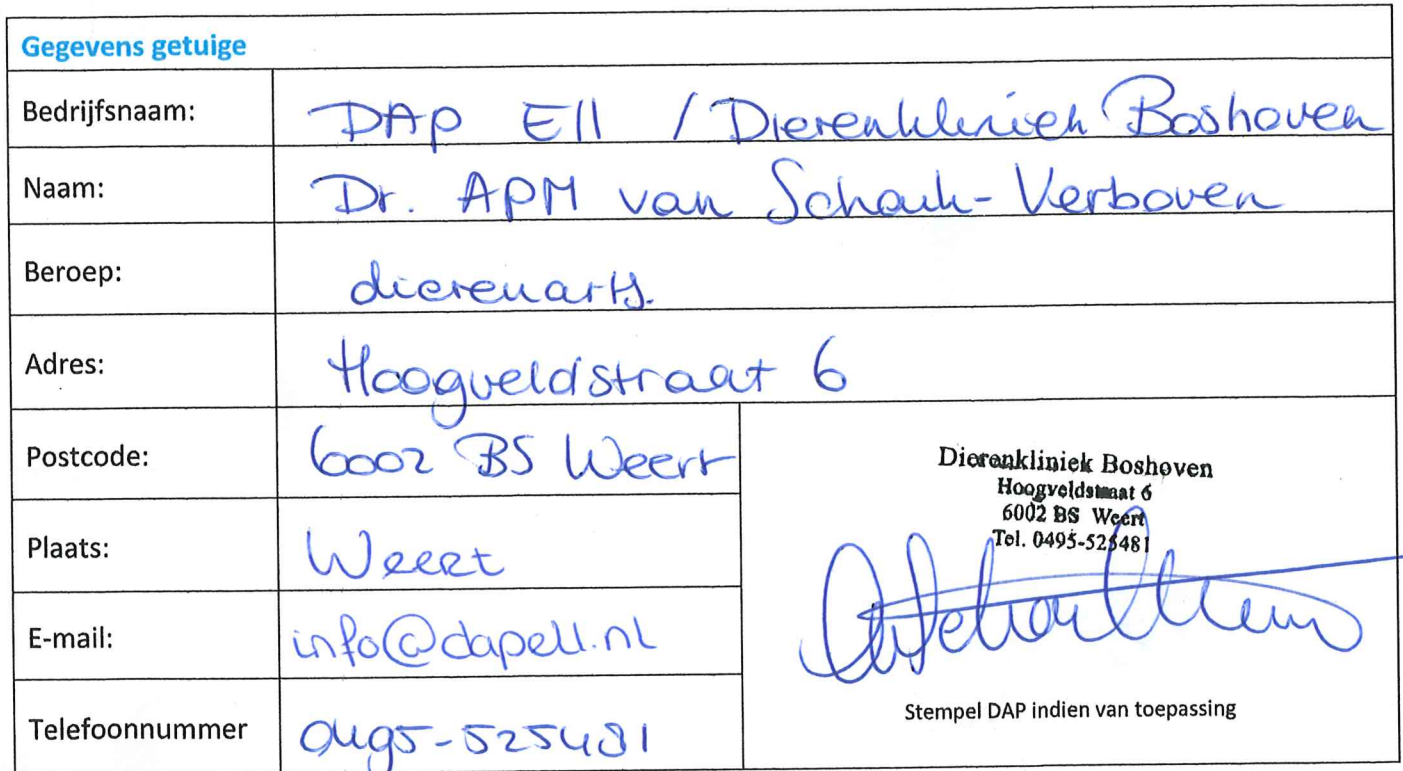 Gegevens getuige
Bedrijfsnaam: DAP Ell / Dierenkliniek Boshoven
Naam: Dr. APM van Schaik-Verboven
Beroep: dierenarts.
Adres: Hoogveldstraat 6
Postcode: 6002 BS Weert
Plaats: Weert
E-mail: info@dapell.nl
Telefoonnummer 0495-525481
Dierenkliniek Boshoven
Hoogveldstraat 6
6002 BS Weert
Tel. 0495-525481
Stempel DAP indien van toepassing